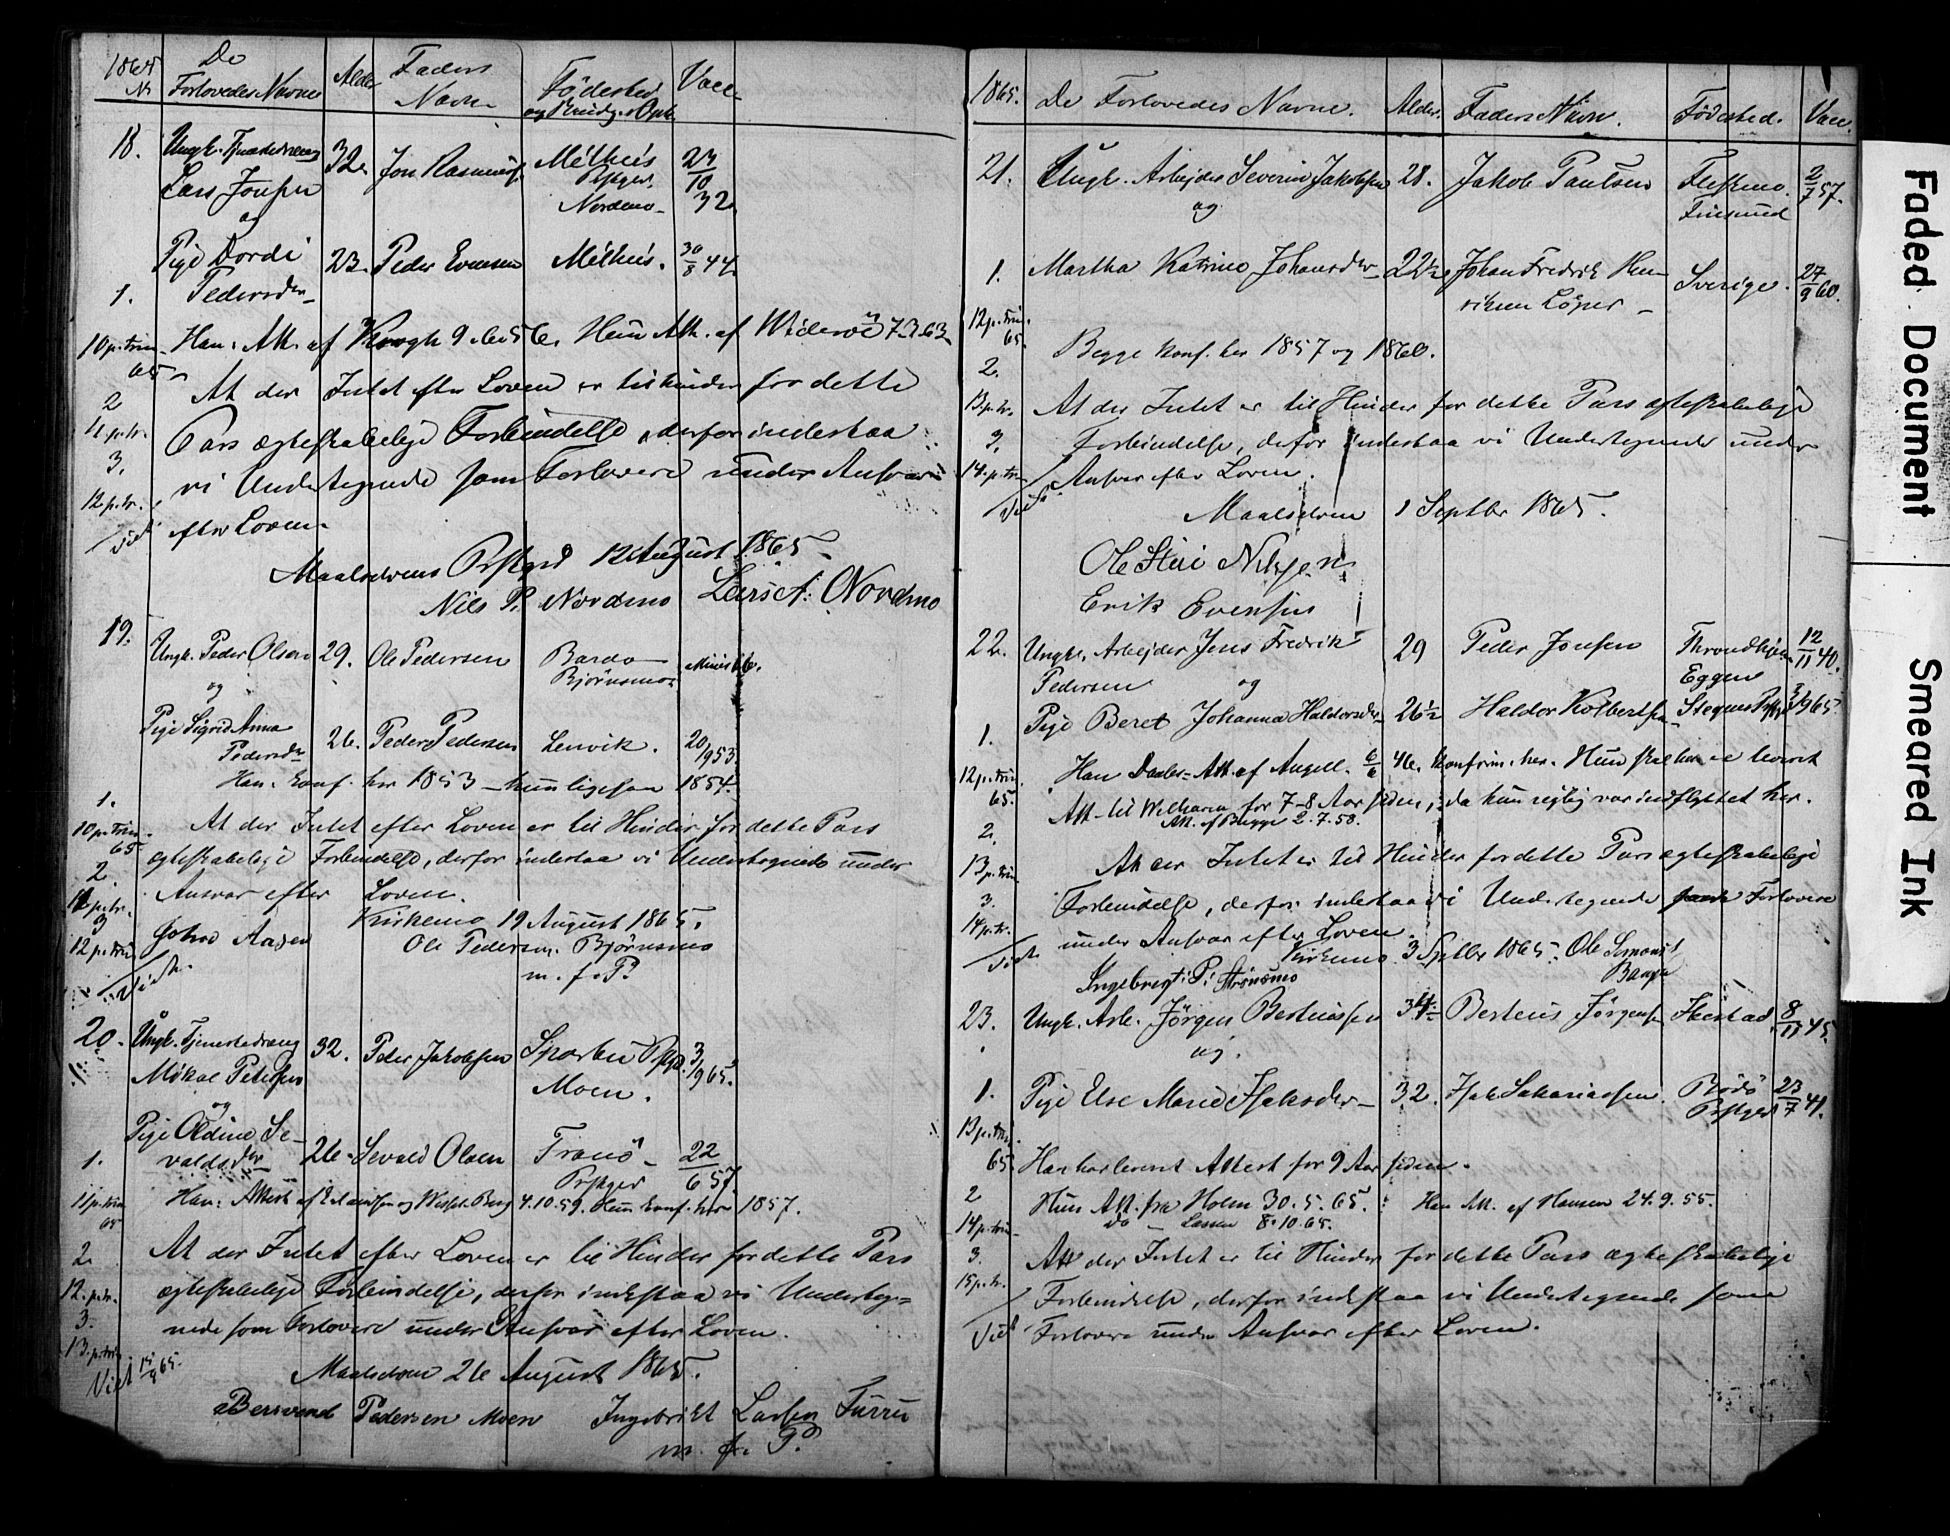 1865
No
De
Forlovedes Navne
Alder
Faders
Navn
Födested
Vacc.
18. Ungk. Tjenestedreng 32 Jon Rasmuss. Melhus 23/10 32
Lars Jonsen Prstgr.
og Nordmo
Pige Dordi 23 Peder Evensen Melhus. 30/8 44
Pedersdr
1.
10 p. trin. Han: Att. af Krogh Hun Att. af
65
At der Intet efter Loven er til Hinder for dette
2
11 p. tr. Pars ægteskabelige Forbindelse, derfor indestaa
3.
vi Undertegnede som Forlovere under Ansvar
12 p. tr.
Viet efter Loven.
Maalselvens Prstgrd 12 August 1865.
Nils P. Nordmo Lars A. Nordmo
19. Ungk. Peder Olsen 29. Ole Pedersen Bardo
og Bjørnsmo
Pige Sigrid Anna
Pedersdr 26. Peder Pedersen Lenvik. 20/9 53
Han: Konf. her 1853 – hun ligesaa 1854.
1.
10 p. trin. At der Intet efter Loven er til Hinder for dette Pars
65
ægteskabelige Forbindelse, derfor indestaa vi Undertegnede under
2
11 p. tr. Ansvar efter Loven.
3 Kirkemo 19 August 1865.
12 p. trin Ole Pedersen Bjørnsmo
Viet. m. f. P.
20. Ungk. Tjenestedreng 32. Peder Jakobsen Sparbu Prstgr. 3/9 65.
Mikal Petersen Moen.
og
Pige Oldine Se-
1. valdsdr 26 Sevald Olsen Tranö 22/6 57
Prstgjr
11 p. trin Han: Attest af og Berg 4.10.59. Hun konf. her 1857.
65
2. At der Intet efter Loven er til Hinder for dette Pars
12. p. tr. ægteskabelige Forbindelse, derfor indestaa vi Underteg-
3. nede som Forlovere under Ansvar efter Loven.
13. p. trin.
Viet 15/9 65. Maalselven 26 August 1865.
Bersvend Pedersen Moen Ingebrikt Larsen Furru
m. f. P.
1865. De Forlovedes Navne. Alder. Faders Navn. Fødested. Vacc.
21. Ungk. Arbejder Severin Jakobsen 28. Jakob Paulsen 2/7 57.
og
1. Martha Katrine Johansdr 22½ Johan Fredrik Hen-
riksen Löper Sverige. 27/9 60.
12 p. trin.
65.
Begge konf. her 1857 og 1860.
2.
13 p. tr. At der Intet er til Hinder for dette Pars ægteskabelige
3. Forbindelse, derfor indestaa vi Undertegnede under
14. p. trin Ansvar efter Loven.
Viet
Maalselven 1 Septbr 1865.
Ole Nilsen
Erik Evensen
22. Ungk. Arbejder Jens Fredrik 29 Peder Jonsen Throndhjem 12/11 40.
Pedersen og Eggen
1. Pige Beret Johanna Haldorsdr 26½ Haldor Kolbertsen 3/9 65.
12 p. trin. Han Daabs-Att. af Angell. 6/6 46. konfirm. her. Hun skal have leveret
65.
Att. til for 7–8 Aar siden, da hun rigtig var indflyttet her.
2. Att. af Bugge 2.7.58.
13 p. trin At der Intet er til Hinder for dette Pars ægteskabelige
3. Forbindelse, derfor indestaa vi Undertegnede som Forlovere
14 p. tr. under Ansvar efter Loven.
Viet Kirkemo 3 Septbr 1865. Ole Simons.
Ingebrigt P. Strömsmo
23. Ungk. Arb. Jörgen Berteussen 34½ Berteus Jörgens. 8/11 45.
og.
1. Pige Else Marie Isaksdr 32. Isak Sakariassen. Bodö 23/7 41.
Prstgjeld
13 p. trin.
65 Han har leveret Attest for 9 Aar siden.
2 Hun Att. fra Holm 30.5.65. Han Att. af Hansen 24.9.55.
14 p. trin do – Lassen 8.10.65.
3. At der Intet er til Hinder for dette Pars ægteskabelige
15 p. tr. Forbindelse, derfor indestaa vi Undertegnede som
Viet Forlovere under Ansvar efter Loven.
Faded Document
Smeared Ink